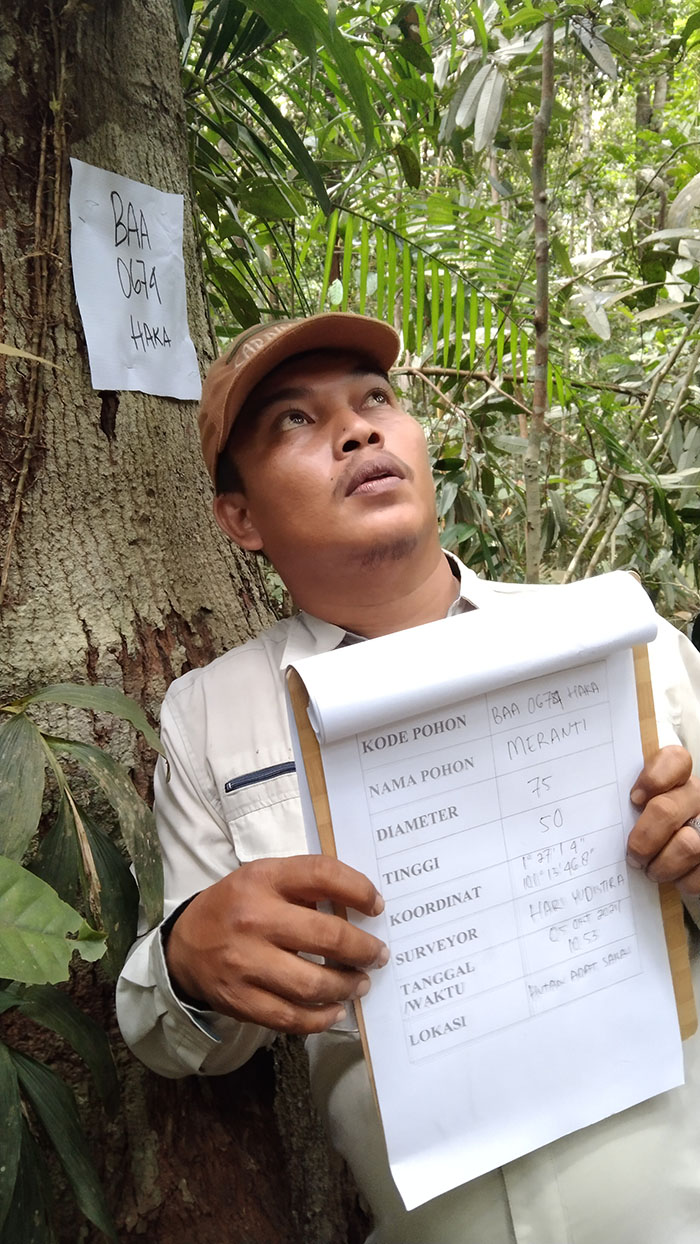 BAA
0679
HAKA
KODE POHON BAA 0679 HAKA
NAMA POHON MERANTI
DIAMETER 75
TINGGI 50
KOORDINAT 1° 27' 1 4"
101° 13' 46.8"
SURVEYOR HARI YUDISTIRA
TANGGAL 05 OKT 2021
/WAKTU 10:53
LOKASI HUTAN ADAT